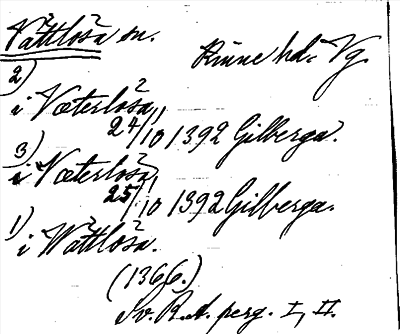 Vättlösa sn. Kinne hd. Vg.
2)
i Væterløsa
24/10 1392 Gilberga.
3)
i Væterløsa
25/10 1392 Gilberga.
1)
i Wättlösa.
(1366.)
Sv. R.A. perg. I, II.